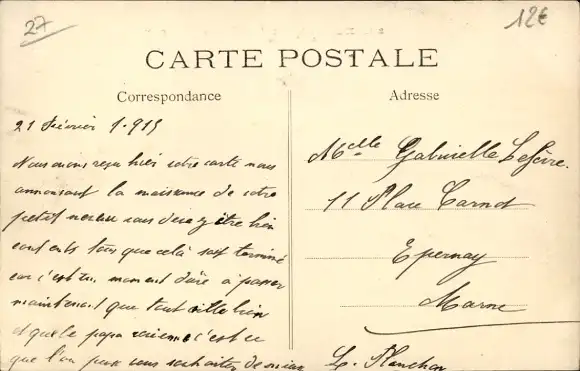 27
12€
CARTE POSTALE
Correspondance
Adresse
21 février 1.915
Nous avons reçu hier votre carte nous
annonsant la naissance de votre
petit neveu vous devez être bien
contents tous que celà soit terminé
car c'est un moment dure a passer
maintenant que tout aille bien
et que le papa revienne c'est ce
que l'on peux vous souhaiter de mieux
Melle Gabrielle Lefèvre.
11 Place Carnot
Epernay
Marne
L. Planchon